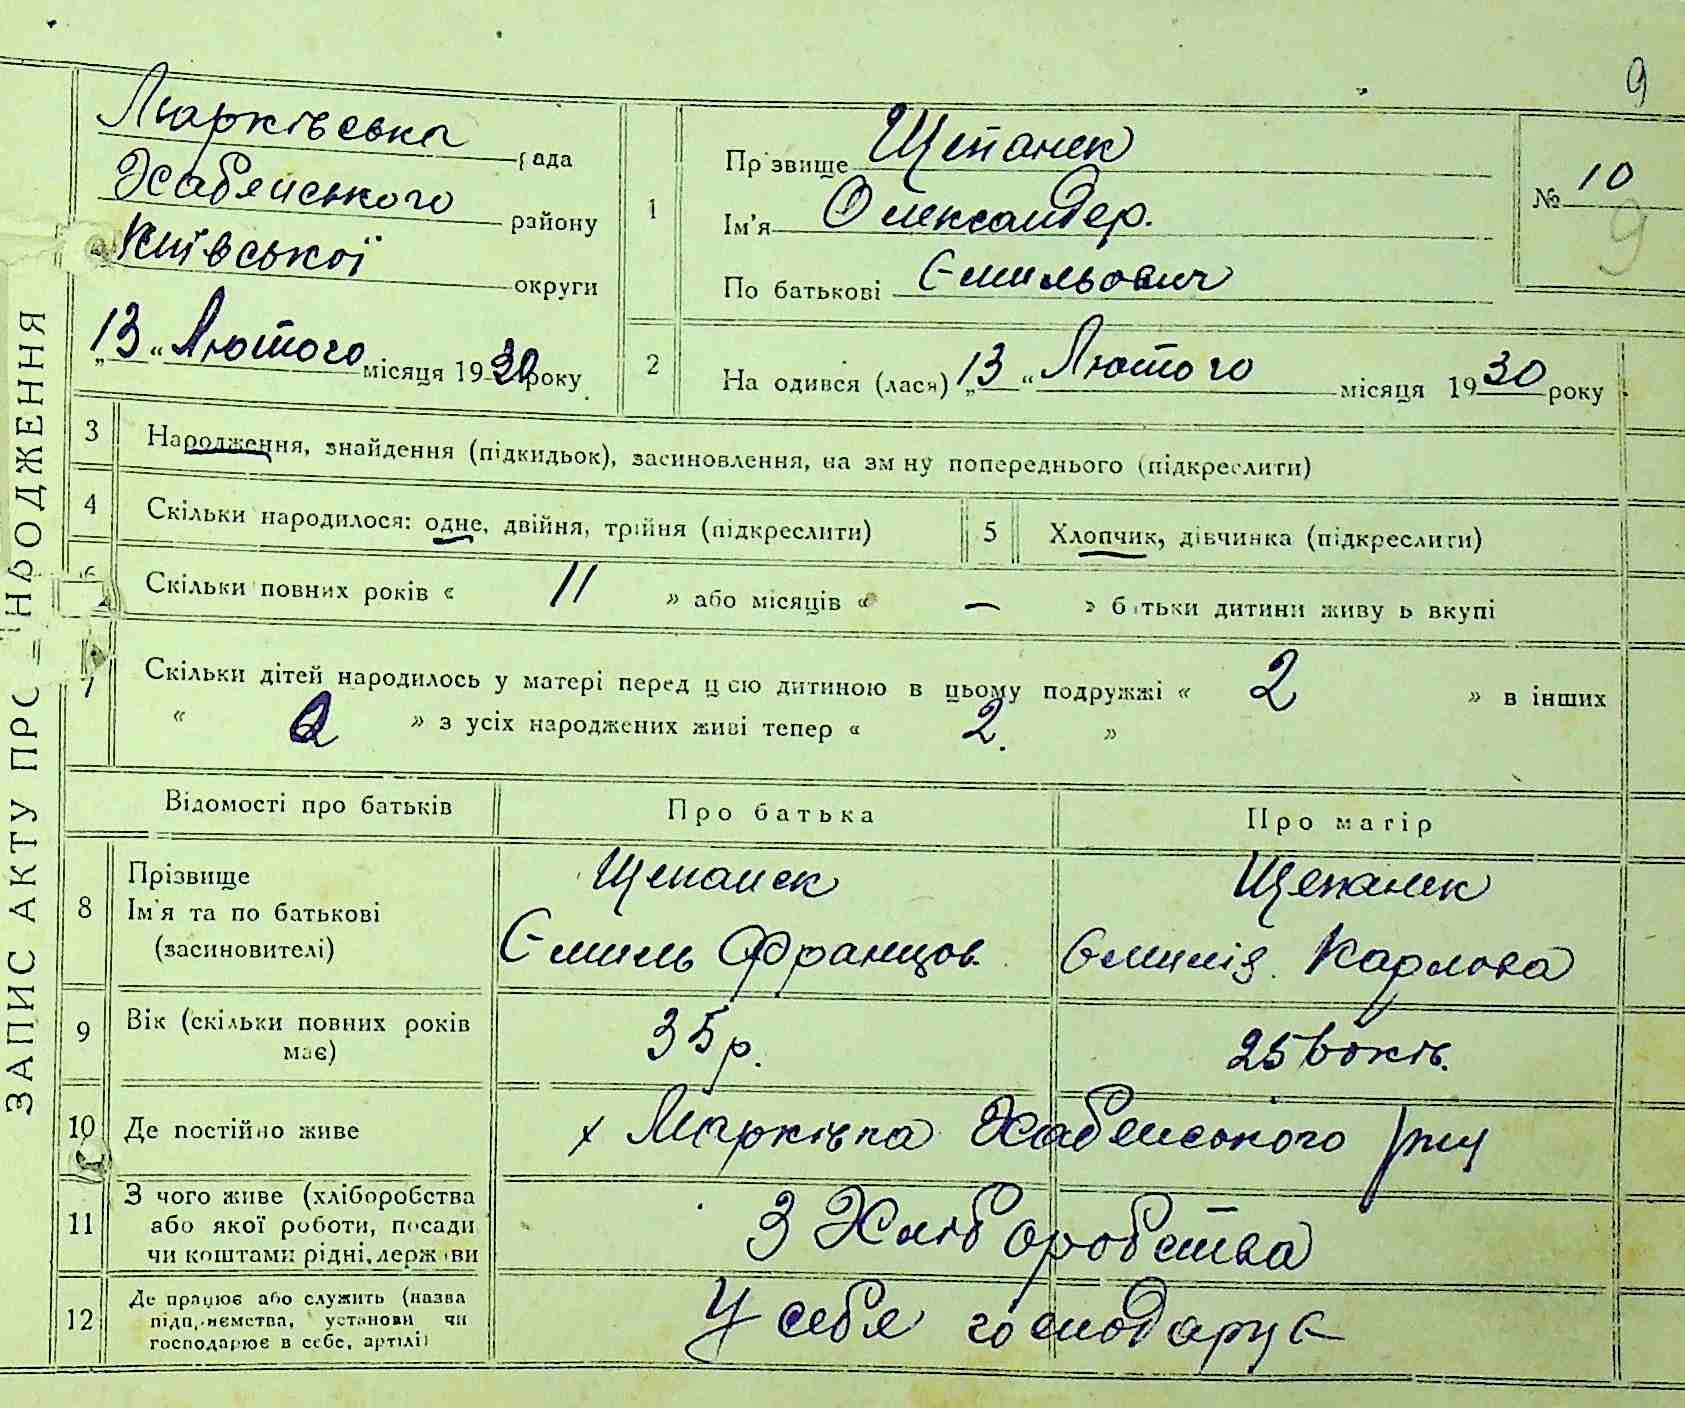 9
ЗАПИС АКТУ ПРО НАРОДЖЕННЯ
Марківська рада
Хабенського району
Київської округи
„13“ Лютого місяця 1930 року
1
Прізвище Щепанек
Ім'я Олександер.
По батькові Ємильович
№ 10
9
2
Народився (лася) „13“ Лютого місяця 1930 року
3 Народження, знайдення (підкидьок), засиновлення, на зміну попереднього (підкреслити)
4 Скільки народилося: одне, двійня, трійня (підкреслити)
5 Хлопчик, дівчинка (підкреслити)
6 Скільки повних років « 11 » або місяців « – » батьки дитини живуть вкупі
7 Скільки дітей народилось у матері перед цією дитиною в цьому подружжі « 2 » в інших
« » з усіх народжених живі тепер « 2. »
Відомості про батьків Про батька Про матір
8 Прізвище Щепанек Щепанек
Ім'я та по батькові Ємиль Францов. Ємилія Карлова
(засиновителі)
9 Вік (скільки повних років має) 35 р. 25 років.
10 Де постійно живе х Марківка Хабенського р-ну
11 З чого живе (хліборобства
або якої роботи, посади
чи коштами рідні, держави
З Хліборобства
12 Де працює або служить (назва
підприємства, установи чи
господарює в себе, артілі)
У себе господарує